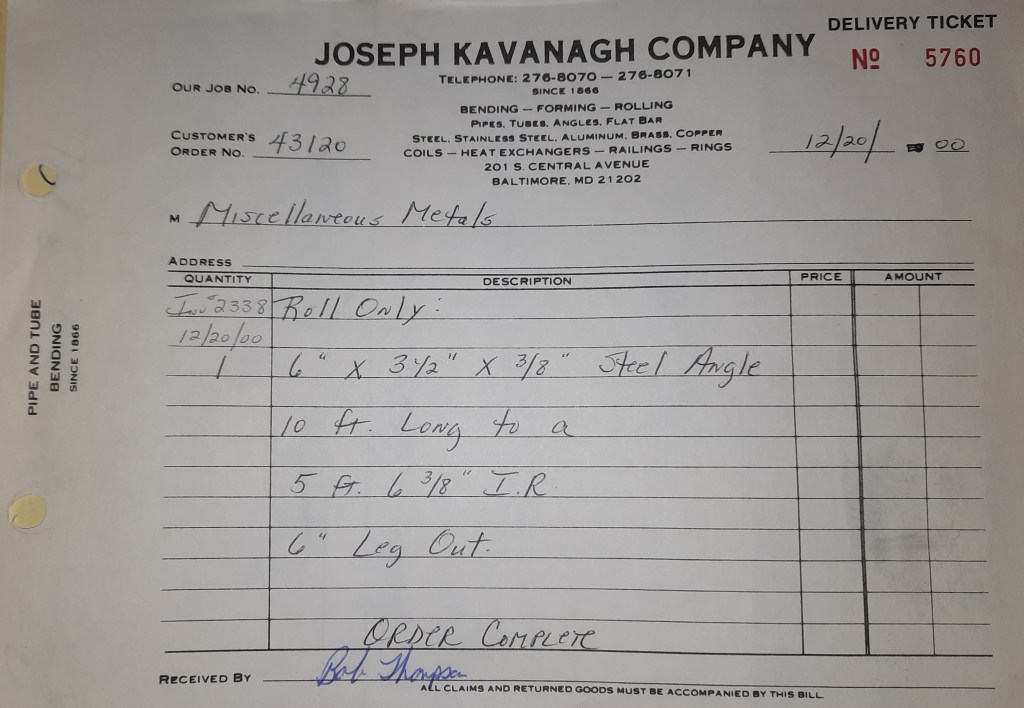 DELIVERY TICKET
JOSEPH KAVANAGH COMPANY
Nº 5760
TELEPHONE: 276-8070 — 276-8071
SINCE 1866
OUR JOB NO. 4928
BENDING — FORMING — ROLLING
PIPES, TUBES, ANGLES, FLAT BAR
STEEL, STAINLESS STEEL, ALUMINUM, BRASS, COPPER
COILS — HEAT EXCHANGERS — RAILINGS — RINGS
201 S. CENTRAL AVENUE
BALTIMORE, MD 21202
CUSTOMER'S
ORDER NO. 43120
12/20/ 00
M Miscellaneous Metals
ADDRESS
QUANTITY DESCRIPTION PRICE AMOUNT
Inv# 2338 Roll Only:
12/20/00
1 6" X 3 1/2" X 3/8" Steel Angle
10 ft. Long to a
5 ft. 6 3/8" I.R.
6" Leg Out.
ORDER COMPLETE
RECEIVED BY Bob Thompson
ALL CLAIMS AND RETURNED GOODS MUST BE ACCOMPANIED BY THIS BILL.
PIPE AND TUBE
BENDING
SINCE 1866